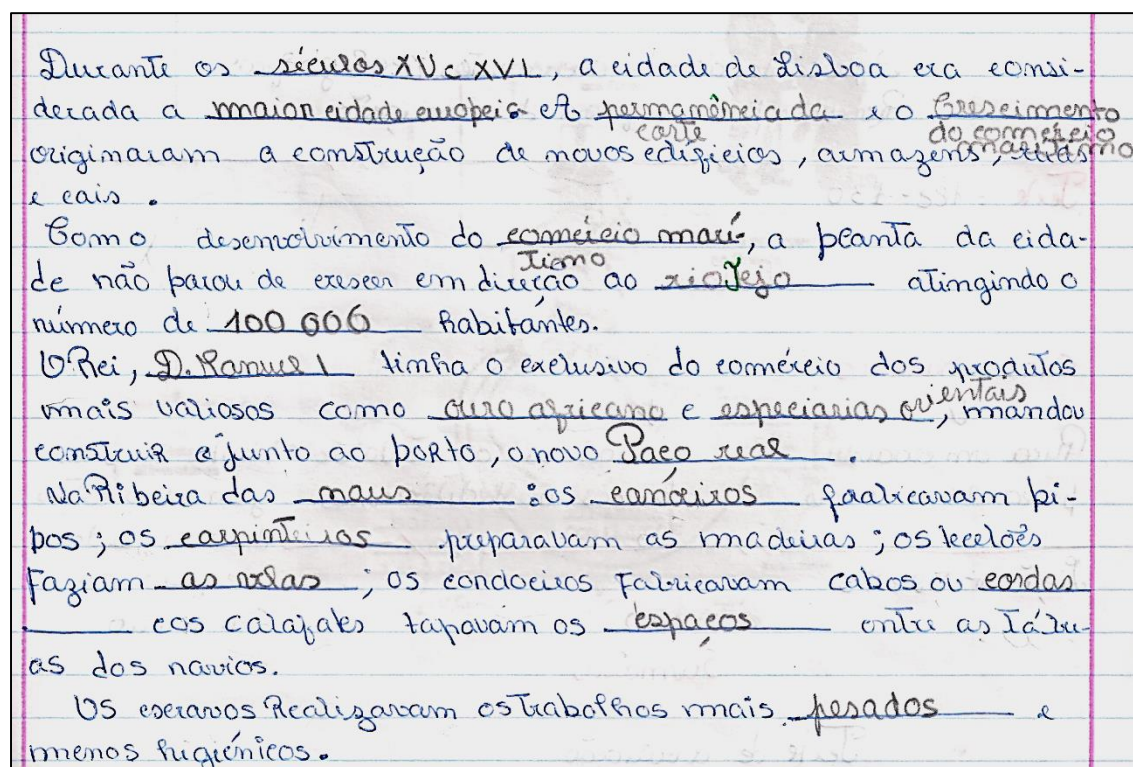 Durante os séculos XV e XVI, a cidade de Lisboa era consi-
derada a maior cidade europeia e A permanência da corte e o Crescimento do comércio marítimo
originaram a construção de novos edifícios, armazens, ruas
e cais.
Com o desenvolvimento do comércio marí-
tiemo, a planta da cida-
de não parou de crescer em direção ao rio Tejo atingindo o
número de 100 000 habitantes.
O Rei, D. Manuel I tinha o exclusivo do comércio dos produtos
mais valiosos como ouro africano e especiarias orientais, mandou
construir junto ao porto, o novo Paço real.
Na Ribeira das naus : os fabricavam pi-
pos; os carpinteiros preparavam as madeiras; os
faziam as velas; os fabricavam cabos ou cordas
e os calafates tapavam os espaços entre as tábu-
as dos navios.
Os escravos Realizavam os trabalhos mais pesados e
menos higiénicos.